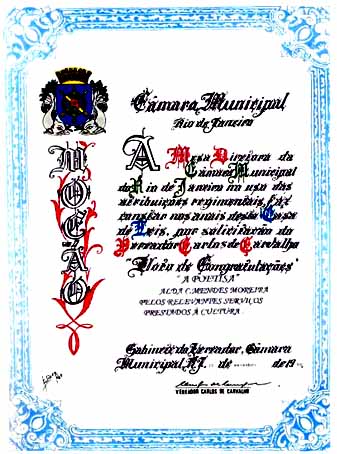 Câmara Municipal
Rio de Janeiro
MOÇÃO
A Mesa Diretora da
Câmara Municipal
do Rio de Janeiro no uso das
atribuições regimentais, faz
constar nos anais desta Casa
de Leis, por solicitação do
Vereador Carlos de Carvalho
"Votos de Congratulações"
"A POETISA"
ALDA C. MENDES MOREIRA
PELOS RELEVANTES SERVIÇOS
PRESTADOS À CULTURA.
Gabinete do Vereador, Câmara
Municipal, RJ, de de 19
VEREADOR CARLOS DE CARVALHO